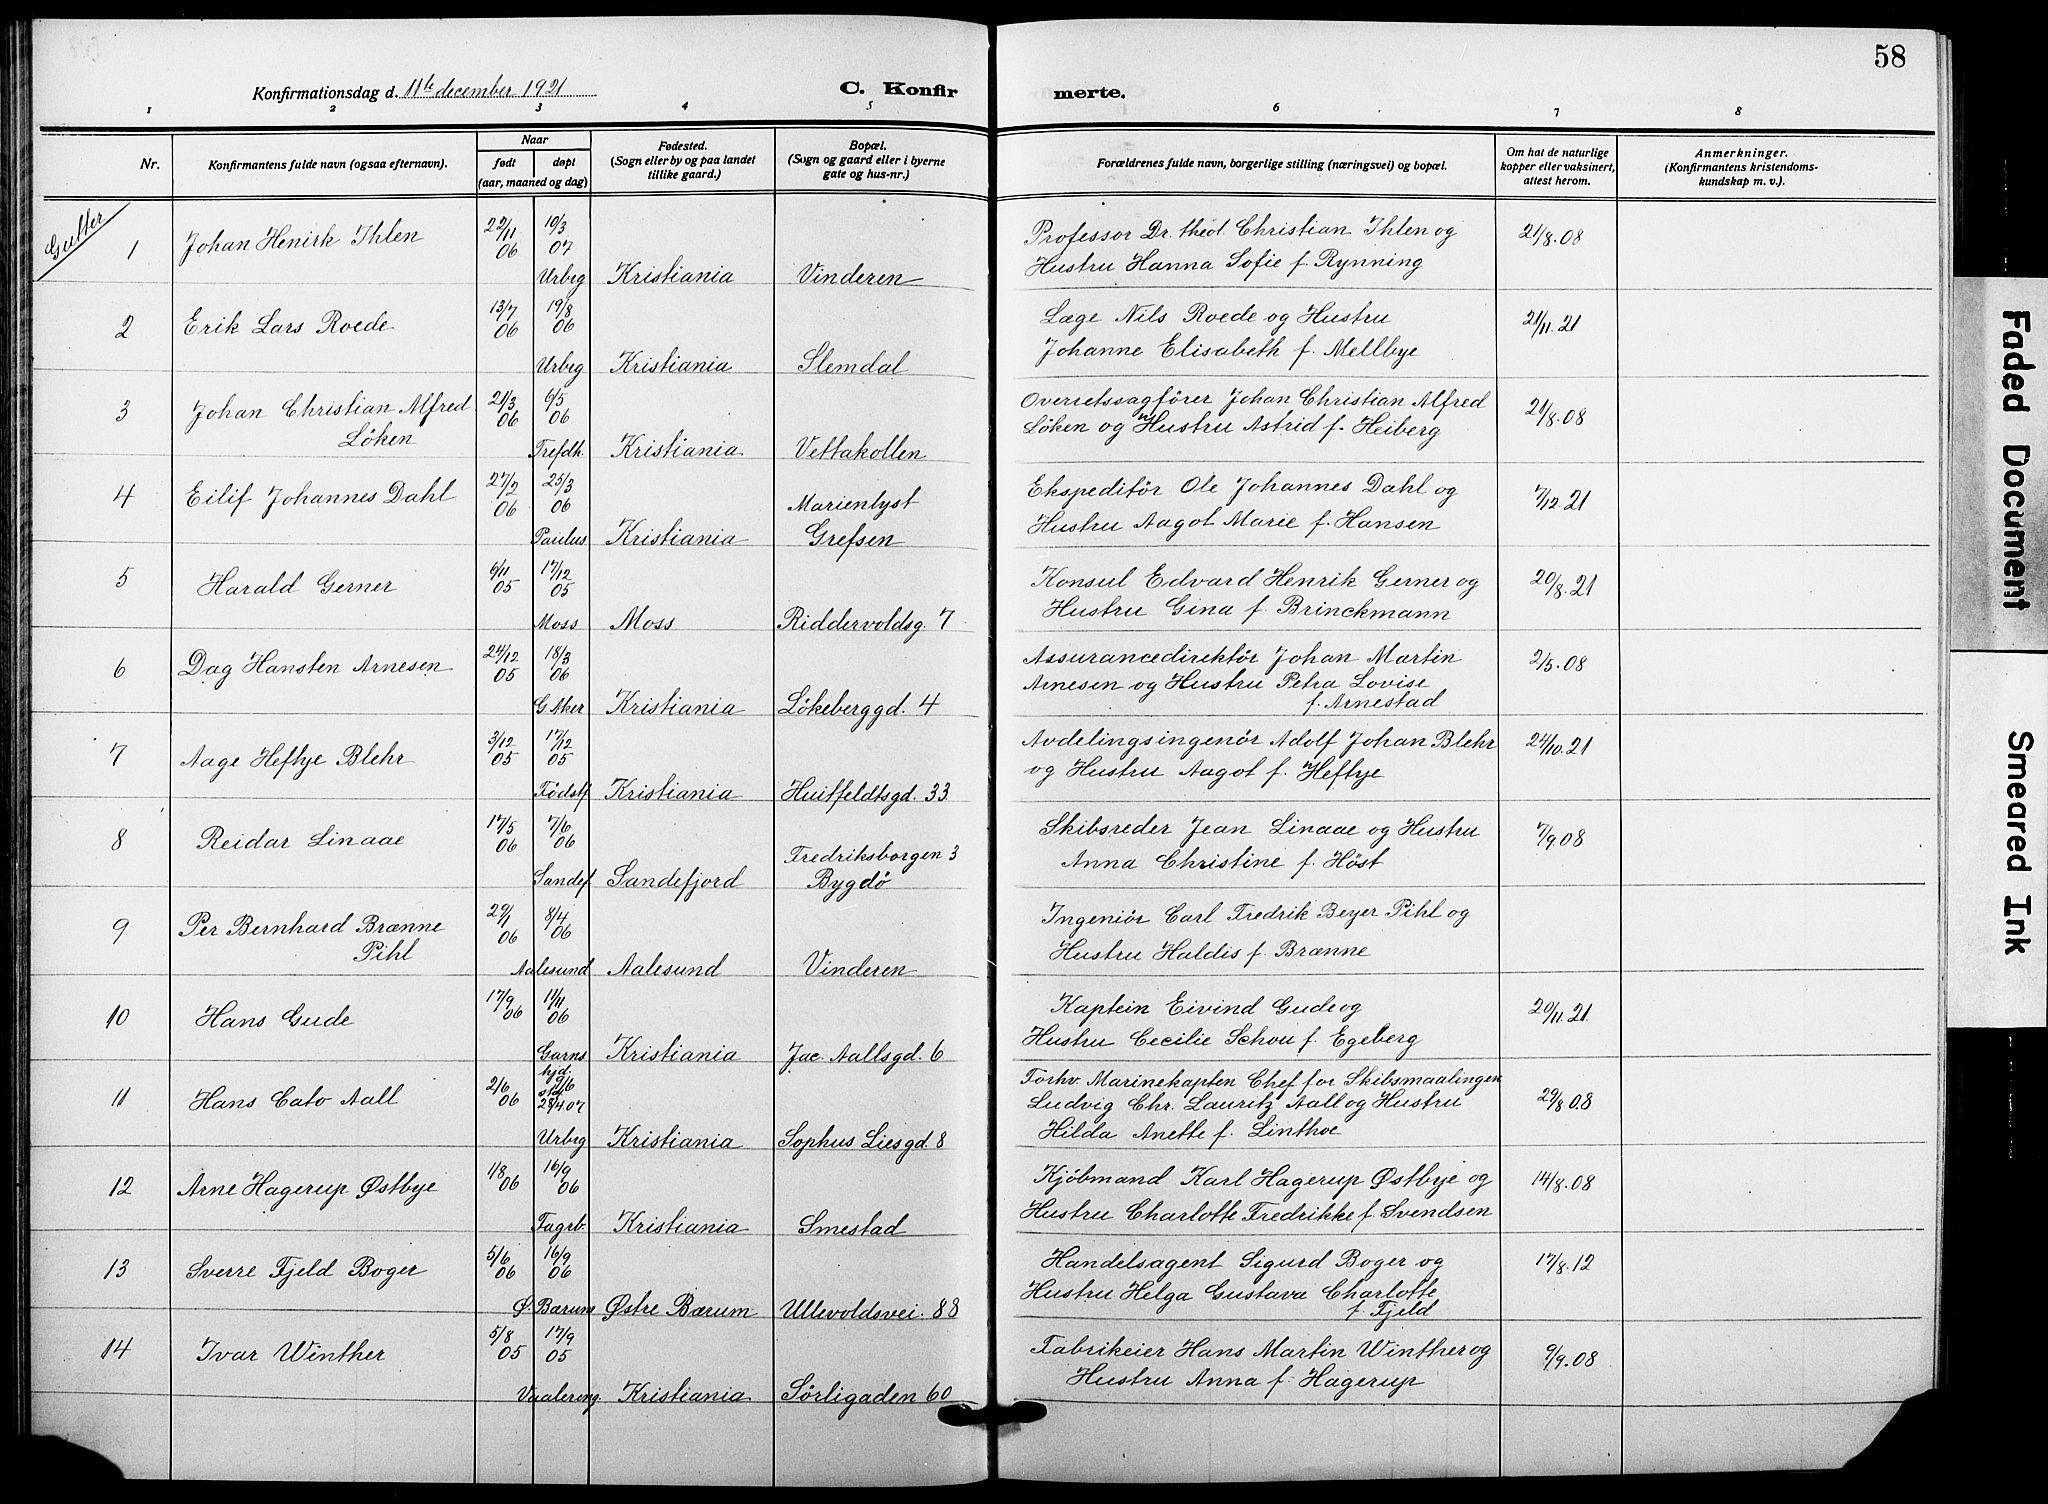 58
Konfirmationsdag d. 11te december 1921
C. Konfir
merte.
1 2 3 4 5 6 7 8
Nr.
Konfirmantens fulde navn (ogsaa efternavn).
Naar
født døpt
(aar, maaned og dag)
Fødested.
(Sogn eller by og paa landet
tillike gaard.)
Bopæl.
(Sogn og gaard eller i byerne
gate og hus-nr.)
Forældrenes fulde navn, borgerlige stilling (næringsvei) og bopæl.
Om hat de naturlige
kopper eller vaksinert,
attest herom.
Anmerkninger.
(Konfirmantens kristendoms-
kundskap m. v.).
Gutter
1 Johan Henirk Ihlen 22/11 06 10/3 07
Urbrg Kristiania Vinderen
Professor Dr. theol. Christian Ihlen og
Hustru Hanna Sofie f. Rynning
21/8.08
2 Erik Lars Roede 13/7 06 19/8 06
Urbrg Kristiania Slemdal
Læge Nils Roede og Hustru
Johanne Elisabeth f. Mellbye
21/11.21
3 Johan Christian Alfred 21/3 06 6/5 06
Løken
Trefdh. Kristiania Vettakollen
Overretssagfører Johan Christian Alfred
Løken og Hustru Astrid f. Heiberg
21/8.08
4 Eilif Johannes Dahl 27/2 06 25/3 06
Marienlyst
Paulus Kristiania Grefsen
Ekspeditør Ole Johannes Dahl og
Hustru Aagot Marie f. Hansen
7/12.21
5 Harald Gerner 6/11 05 17/12 05
Moss Moss Riddervoldsg. 7
Konsul Edvard Henrik Gerner og
Hustru Gina f. Brinckmann
20/8.21
6 Dag Hansten Arnesen 24/12 05 18/3 06
G Aker Kristiania Løkeberggd. 4
Assurancedirektør Johan Martin
Arnesen og Hustru Petra Lovise
f. Arnestad
2/5.08
7 Aage Heftye Blehr 3/12 05 17/12 05
Fødstf Kristiania Huitfeldtsgd. 33
Avdelingsingenør Adolf Johan Blehr
og Hustru Aagot f. Heftye
24/10.21
8 Reidar Linaae 17/5 06 7/6 06
Fredriksborgen 3
Sandef Sandefjord Bygdø
Skibsreder Jean Linaae og Hustru
Anna Christine f. Høst
7/9.08
9 Per Bernhard Brænne 29/1 06 8/4 06
Pihl
Aalesund Aalesund Vinderen
Ingeniør Carl Fredrik Beyer Pihl og
Hustru Haldis f. Brænne
10 Hans Gude 17/9 06 11/11 06
Garns Kristiania Jac. Aallsgd. 6
Kaptein Eivind Gude og
Hustru Cecilie Schou f. Egeberg
20/11.21.
11 Hans Cato Aall 2/6 06 hjd. 9/6 stdf 28/4 07
Urbrg Kristiania Sophus Liesgd. 8
Forhv. Marinekapten Chef for Skibsmaalingen
Ludvig Chr. Lauritz Aall og Hustru
Hilda Anette f. Linthoe
29/8 08
12 Arne Hagerup Østbye 1/8 06 16/9 06
Fagrb. Kristiania Smestad
Kjøbmand Karl Hagerup Østbye og
Hustru Charlotte Fredrikke f. Svendsen
14/8.08
13 Sverre Fjeld Boger 5/6 06 16/9 06
Ø. Bærum Østre Bærum Ullevoldsvei. 88
Handelsagent Sigurd Boger og
Hustru Helga Gustava Charlotte
f. Fjeld
17/8.12
14 Ivar Winther 5/8 05 17/9 05
Vaalering. Kristiania Sørligaden 60
Fabrikeier Hans Martin Winther og
Hustru Anna f. Hagerup
9/9.08
Faded Document
Smeared Ink